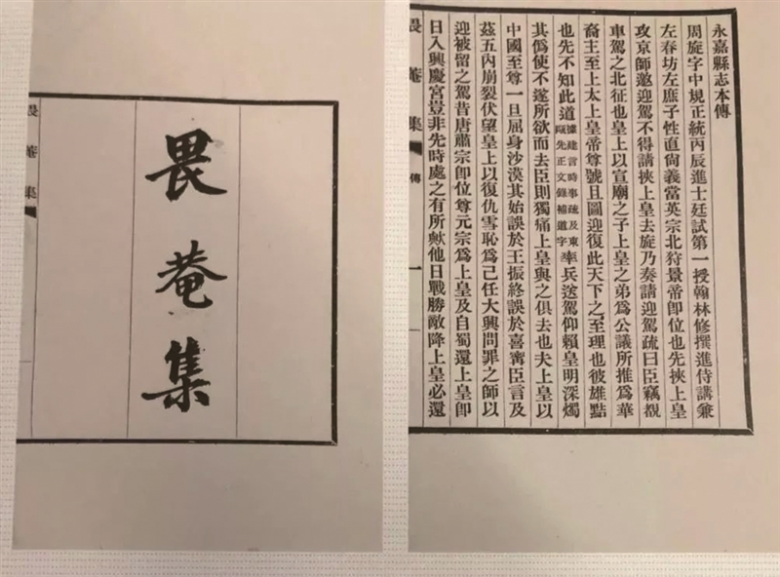 畏菴集
畏菴集
畏菴集 傳 一
永嘉縣志本傳
周旋字中規正統丙辰進士廷試第一授翰林修撰進侍講兼
左春坊左庶子性直尙義當英宗北狩景帝卽位也先挾上皇
攻京師邀迎駕不得請挾上皇去旋乃奏請迎駕疏曰臣竊覩
車駕之北征也皇上以宣廟之子上皇之弟爲公議所推爲華
裔主至上太上皇帝尊號且圖迎復此天下之至理也彼雄黠
也先不知此道據建言時事疏及東甌先正文錄補道字率兵送駕仰賴皇明深燭
其僞使不遂所欲而去臣則獨痛上皇與之俱去也夫上皇以
中國至尊一旦屈身沙漠其始誤於王振終誤於喜甯臣言及
茲五內崩裂伏望皇上以復仇雪恥爲己任大興問罪之師以
迎被留之駕昔唐肅宗卽位尊元宗爲上皇及自蜀還上皇卽
日入興慶宮豈非先時處之有所歟他日戰勝敵降上皇必還